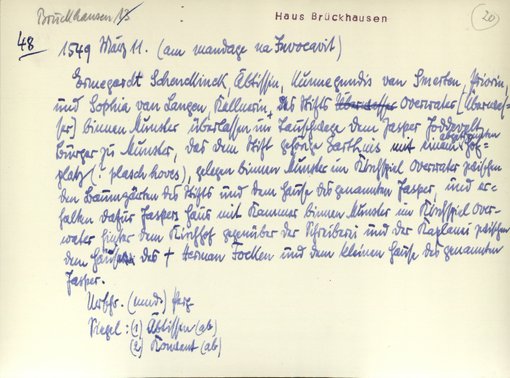 Brückhausen
Haus Brückhausen
(20)
48
1549 März 11. (am mandage na Invocavit)
Ermegardt Schenckinck, Äbtissin, Kunnegundis van Smerten, Priorin,
und Sophia van Langen Kellnerin, des Stifts Überwasser Overwater [Überwas-
ser] binnen Münster überlassen im Tauschwege dem Jasper
Bürger zu Münster, das dem Stift gehörige Garthuis mit einem abgegrenzten Hof-
platz (: plasch hoves), gelegen binnen Münster im Kirchspiel Overwater zwischen
den Baumgärten des Stifts und dem Hause des genannten Jasper, und er-
halten dafür Jaspers Haus mit Kammer binnen Münster im Kirchspiel Over-
water hinter dem Kirchhof gegenüber der Schreiberei und der Kaplanei zwischen
dem Hause des + Herman Focken und dem kleinen Hause des genannten
Jasper.
Urschr. (mnd.) Perg
Siegel: (1) Äbtissin (ab)
(2) Konvent (ab)